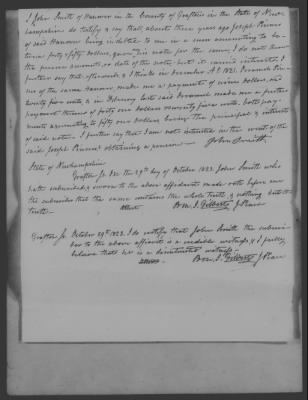 I John Smith of Hanover in the County of Grafton in the State of New
Hampshire do testify & say that, about three years ago Joseph Pinneo
of said Hanover being indebted to me in a sum amounting to be-
tween forty & fifty dollars, gave his note for the same, I do not know
the precise amount, or date of the note, but it carried interest, I
further say that afterwards, & I think in December A.D. 1821. Pinneo
of the same Hanover, made me a payment of nine dollars and
twenty five cents, & in February last said made me a further
payment thereof of forty one dollars seventy five cents, both pay-
ments amounting to fifty one dollars, being the principal & interest
of said note. I further say that I am not interested in the event of the
said Joseph Pinneo's obtaining a pension
John Smith
State of Newhampshire
Grafton Ss. On the 29th day of October 1823. John Smith who
hath subscribed, & sworn to the above affidavit made oath before me
the subscriber that the same contains the whole truth & nothing but the
truth. Attest
Ben. J. Gilbert J Peace
Grafton Ss October 29th 1823. I do certify that John Smith the subscri-
ber to the above affidavit is a credible witness, & I fully
believe that he is a disinterested witness.
Ben. J. Gilbert J Peace